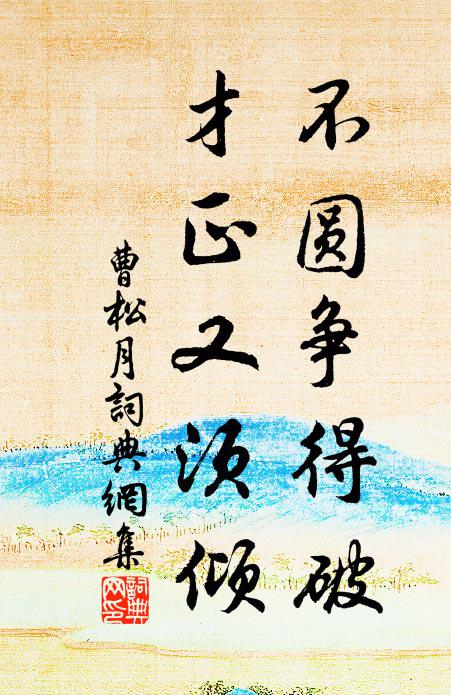 不圆争得破
才正又须倾
曹松月詞典網集
詞典网印